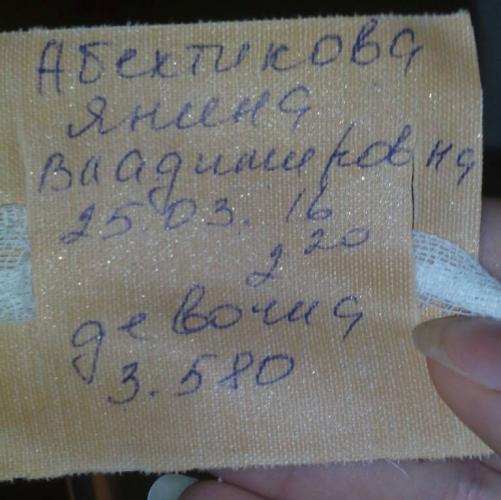 Абехтикова
Янина
Владимировна
25.03.16
2 20
девочка
3.580